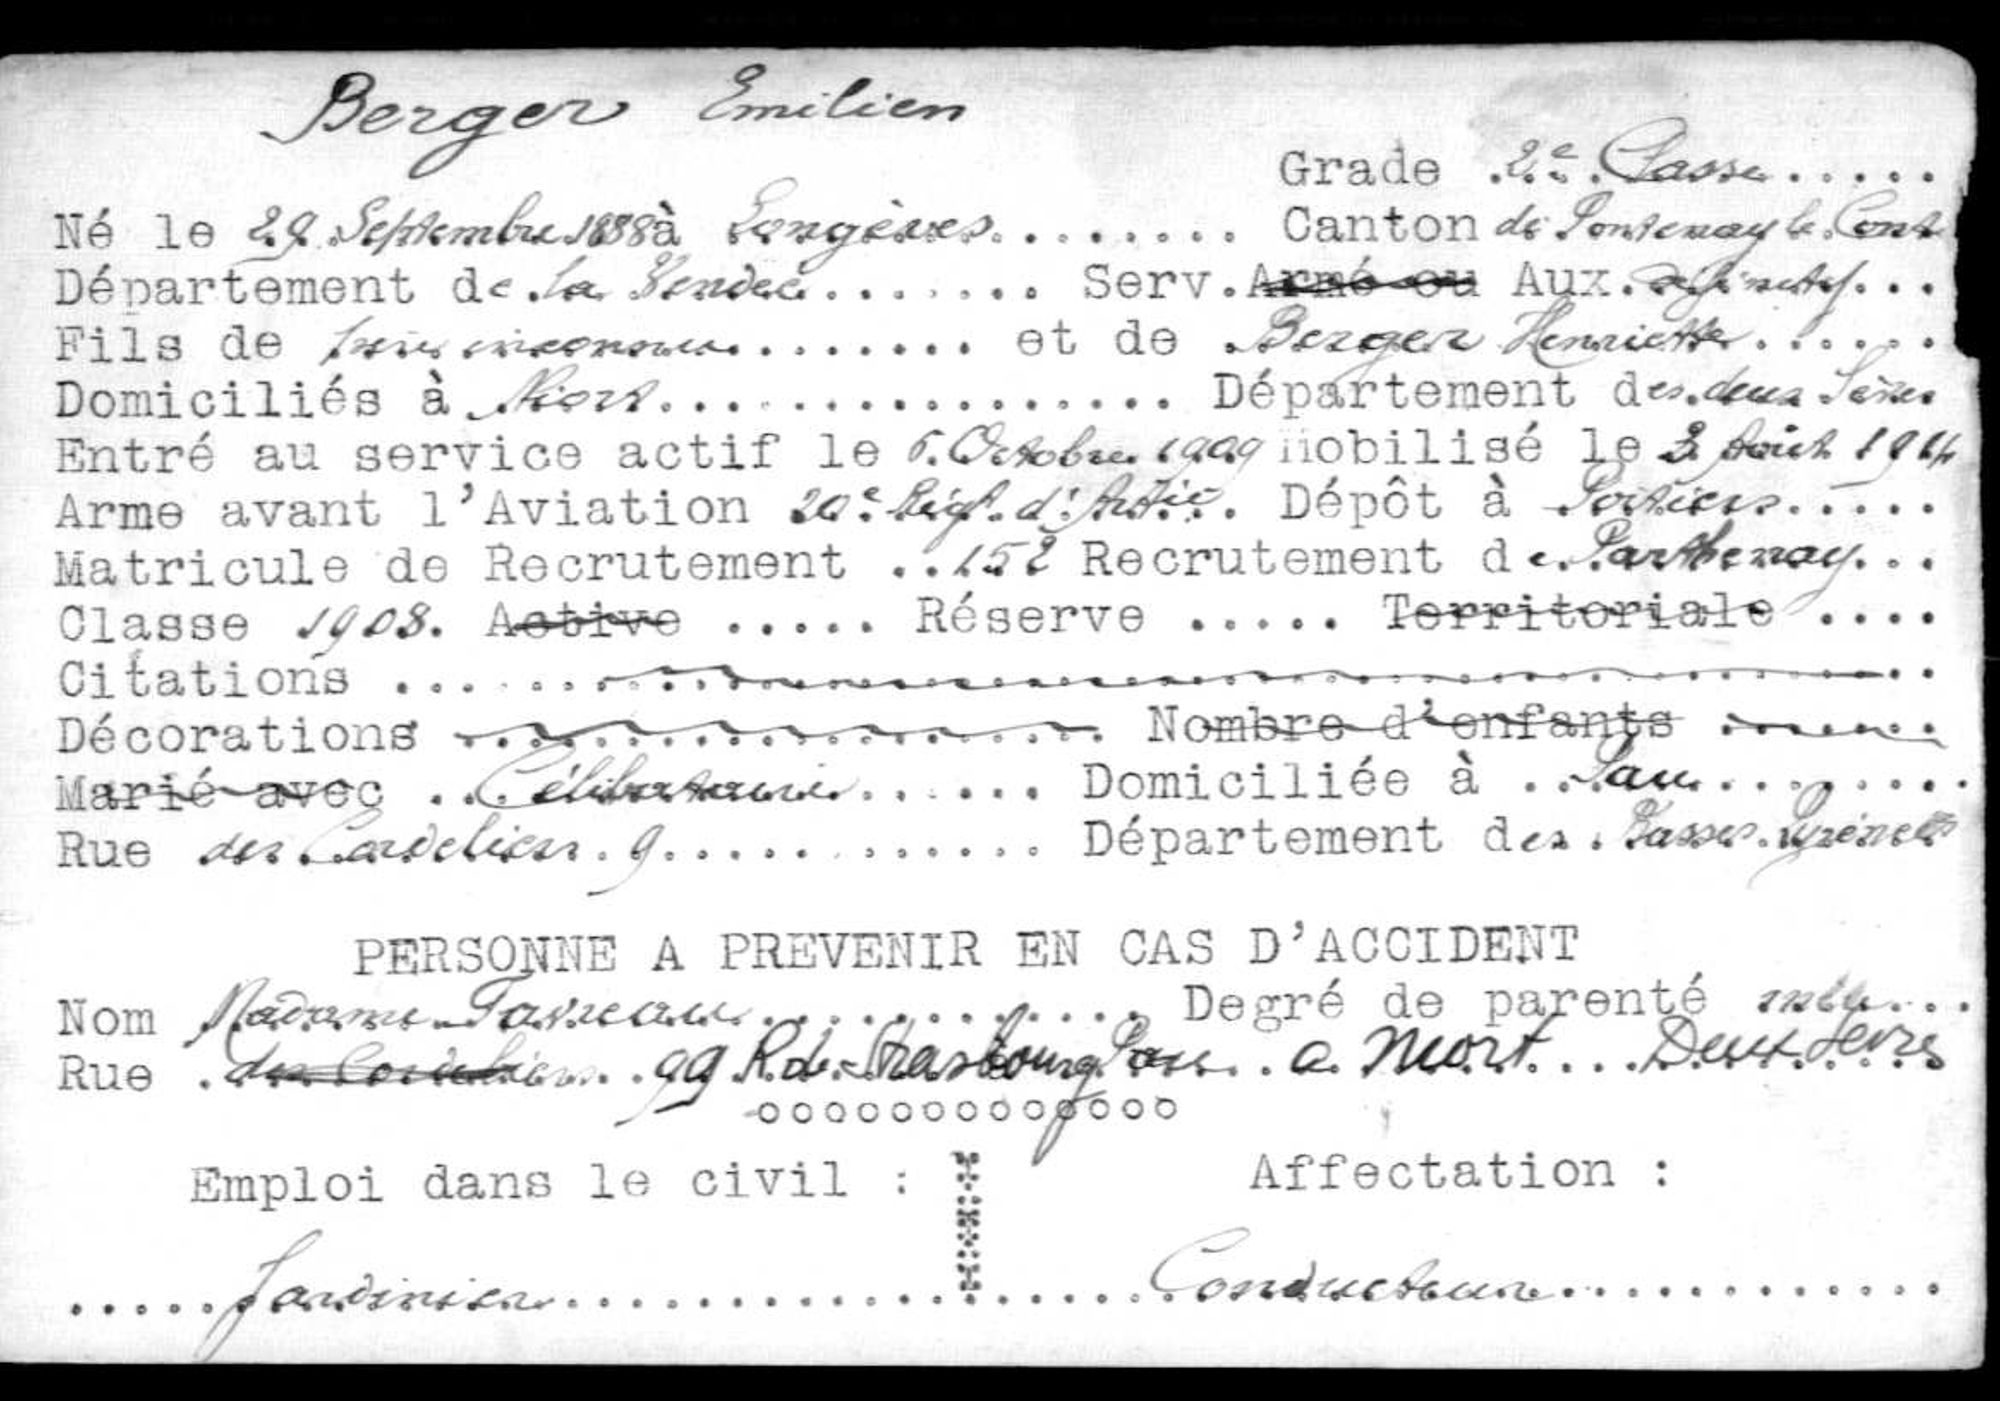 Berger Emilien
Grade 2e Classe
Né le 29 Septembre 1888 à Longèves Canton de Fontenay le Cont
Département de la Vendée Serv. Armé ou Aux. définitif
Fils de père inconnu et de Berger Henriette
Domiciliés à Niort Département des deux Sèvres
Entré au service actif le 6 Octobre 1909 Mobilisé le 3 Août 1914
Arme avant l'Aviation 20e Régt. d'Artie. Dépôt à Poitiers
Matricule de Recrutement 152 Recrutement de Parthenay
Classe 1908. Active Réserve Territoriale
Citations
Décorations Nombre d'enfants
Marié avec Célibataire Domiciliée à Pau
Rue des Cordeliers 9 Département des Basses Pyrénées
PERSONNE A PREVENIR EN CAS D'ACCIDENT
Nom Madame Degré de parenté
Rue des Cordeliers 99 R. de Strasbourg Pau a Niort Deux Sevres
Emploi dans le civil : Affectation :
Jardinier Conducteur